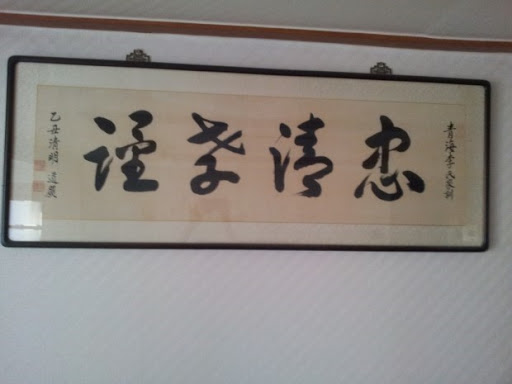 青海李氏家訓
忠清孝謹
乙丑清明